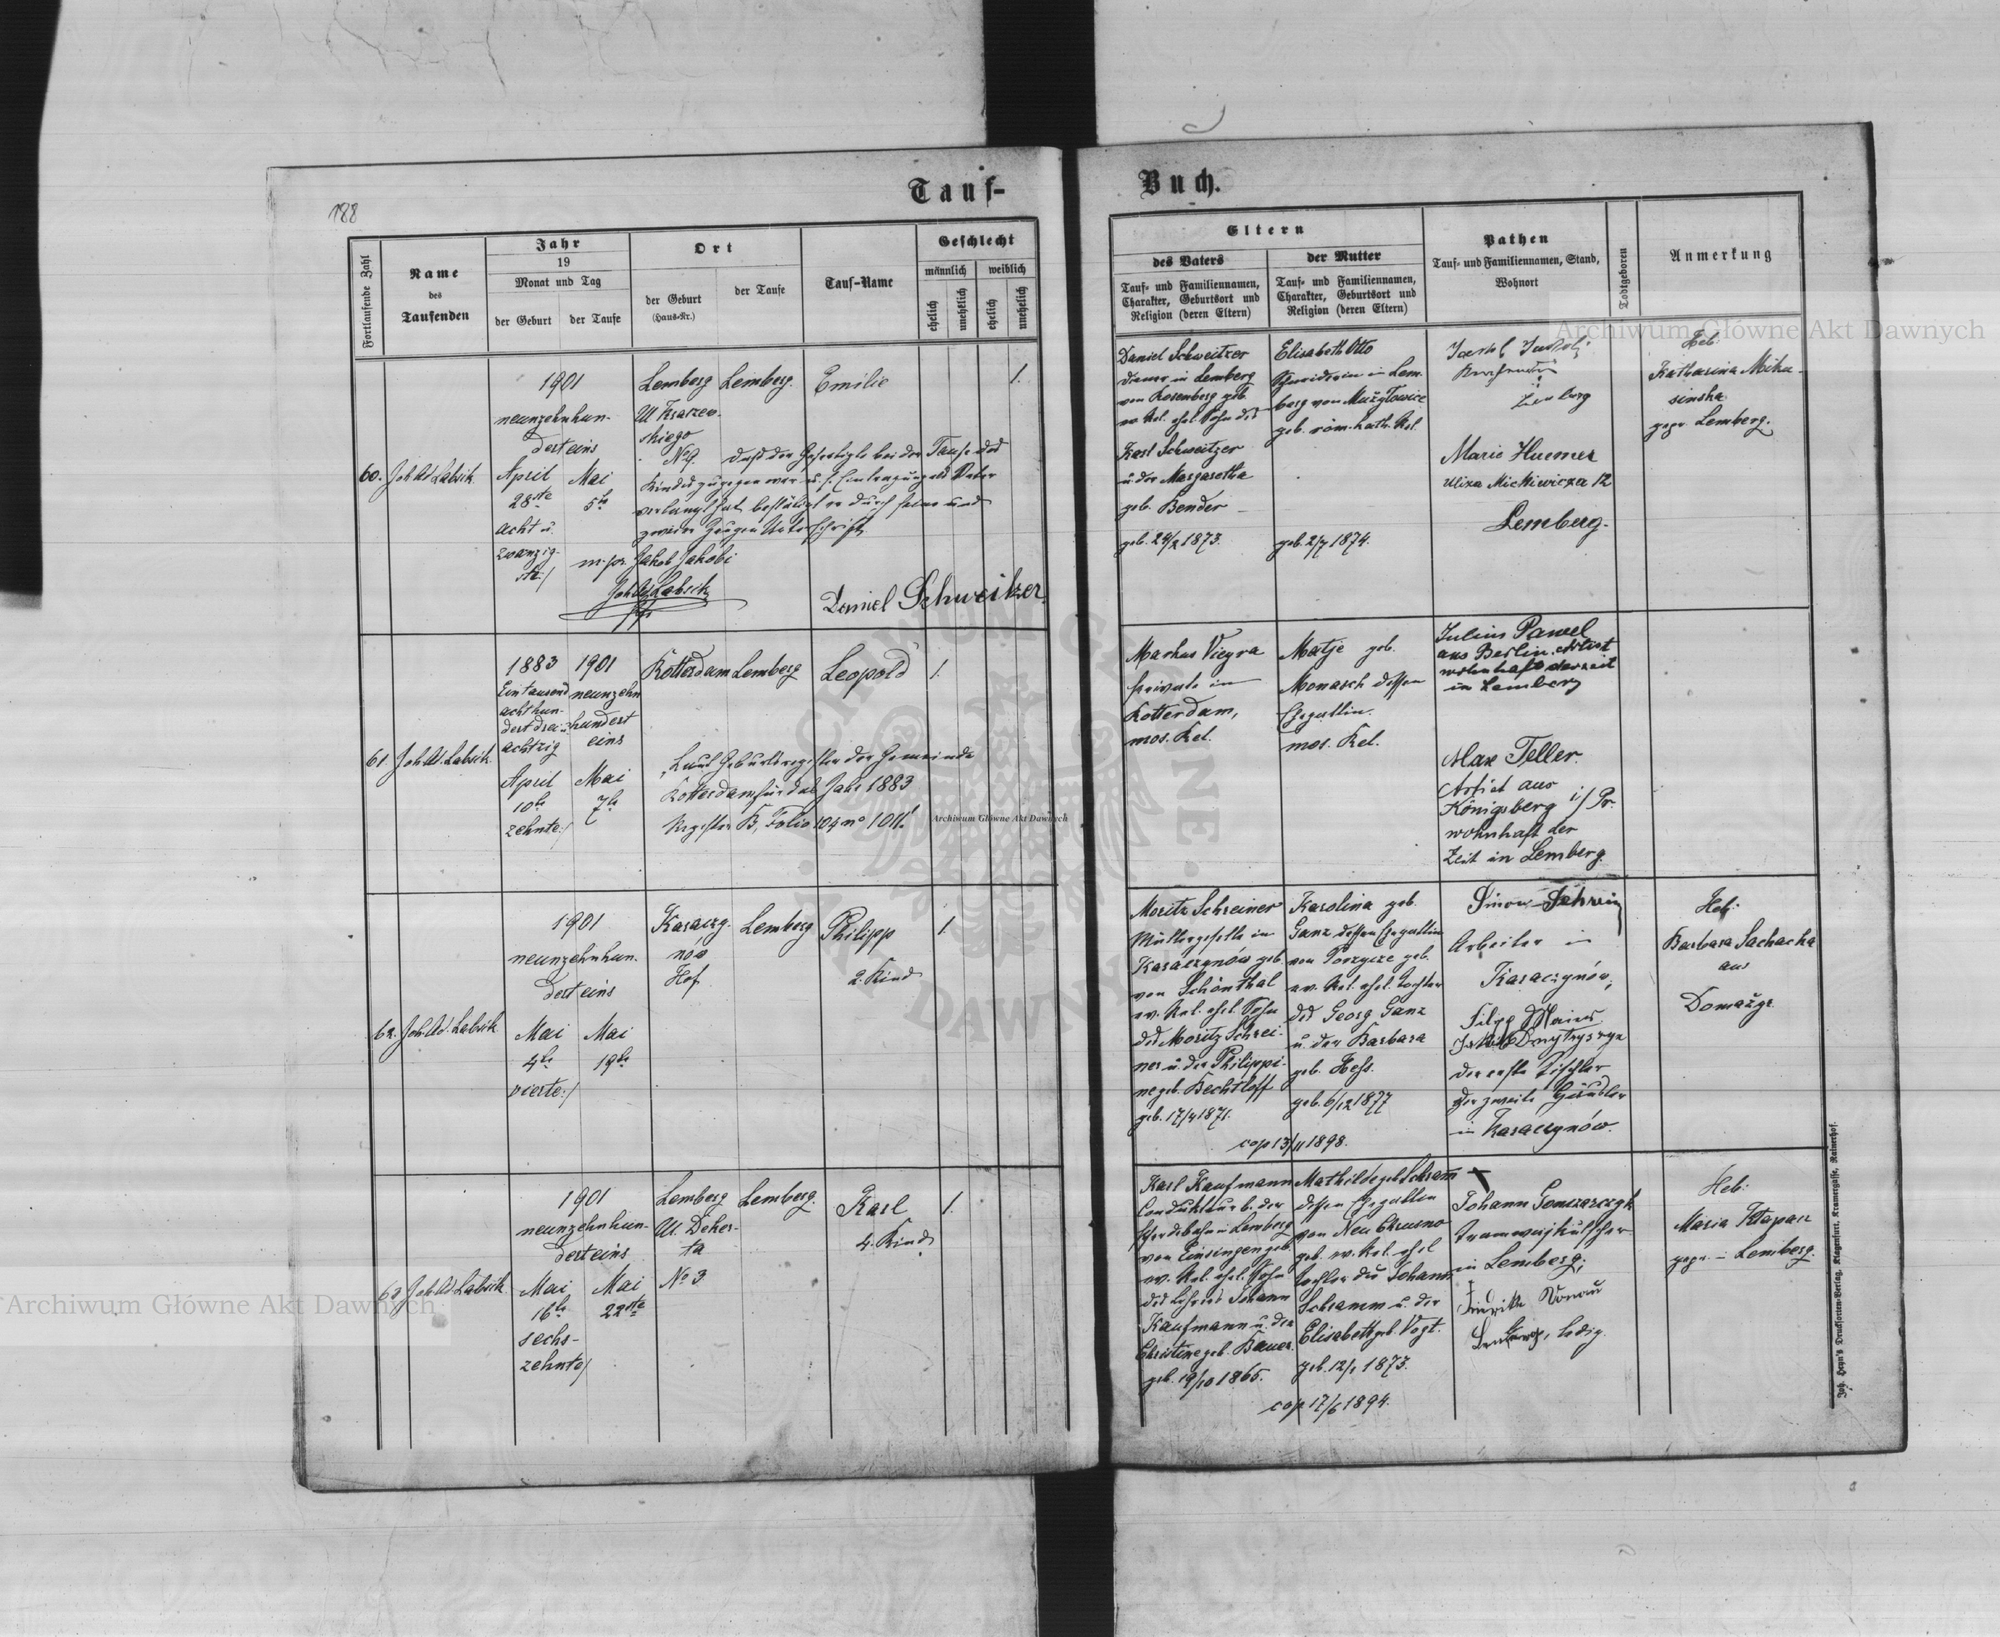 188
Tauf-
Fortlaufende Zahl
Name
des
Taufenden
Jahr
19
Monat und Tag
der Geburt
der Taufe
Ort
der Geburt
(Haus-Nr.)
der Taufe
Tauf-Name
Geschlecht
männlich
weiblich
ehelich
unehelich
ehelich
unehelich
60. Joh Ad Labsik
1901
neunzehnhun-
dert eins
April
28ste
acht u.
zwanzig-
ste:/
Mai
5te
Lemberg
Ul Kraszew-
skiego
No 9.
Lemberg.
Emilie
1.
Daß der Gefertigte bei der Taufe des
Kindes zugegen war u. s. Eintragung als Vater
verlangt hat bestätigt er durch seine und
zweier Zeugen Unterschrift
m. pr. Jakob Jakobi
Joh Ad Labsik
Daniel Schweitzer.
61 Joh Ad. Labsik.
1883
Eintausend
acht hun-
dert drei u.
achtzig
April
10te
zehnte:/
1901
neunzehn
hundert
eins
Mai
7te
Rotterdam
Lemberg
Leopold
1.
"Laut Geburtsregister der Gemeinde
Rotterdam für das Jahr 1883
Register B, Folio 104 no 1011."
62. Joh Ad. Labsik
1901
neunzehnhun-
dert eins
Mai
4te
vierte:/
Mai
19te
Kasaczy-
nów
Hof
Lemberg
Philipp
2. Kind
1.
63 Joh Ad. Labsik.
1901
neunzehnhun-
dert eins
Mai
16te
sechs-
zehnte/
Mai
22ste
Lemberg
Ul. Deker-
ta
No 3
Lemberg.
Karl
4. Kind
1.
Buch.
Eltern
des Vaters
Tauf- und Familiennamen,
Charakter, Geburtsort und
Religion (deren Eltern)
der Mutter
Tauf- und Familiennamen,
Charakter, Geburtsort und
Religion (deren Eltern)
Pathen
Tauf- und Familiennamen, Stand,
Wohnort
Todtgeboren
Anmerkung
Daniel Schweitzer
Diener in Lemberg
von Rosenberg geb.
ev. Rel. ehel. Sohn des
Karl Schweitzer
u. der Margaretha
geb. Bender
geb. 24/2 1873.
Elisabeth Otto
Schneiderin in Lem-
berg von Mużyłowice
geb. röm. kath. Rel.
geb. 2/7 1874.
Jakob Jakobi
Lemberg
Marie Huemer
Uliza Mickiewicza 12
Lemberg.
Heb:
Katharina Miku-
sinska
gepr. Lemberg.
Markus Vieyra
Private in
Rotterdam,
mos. Rel.
Matje geb.
Monasch dessen
Ehegattin.
mos. Rel.
Julius Pawel
aus Berlin. Artist
wohnhaft derzeit
in Lemberg
Max Teller.
Artist aus
Königsberg i/Pr.
wohnhaft der
Zeit in Lemberg.
Moritz Schreiner
Müllergeselle in
Kasaczynów geb.
von Schönthal
ev. Rel. ehel. Sohn
des Moritz Schrei-
ner u. der Philippi-
ne geb. Bechtloff
geb. 17/4 1871.
Karolina geb.
Ganz dessen Ehegattin
von Porzycze geb.
ev. Rel. ehel. Tochter
des Georg Ganz
u. der Barbara
geb. Heß.
geb. 6/12 1877
cop 13/11 1898.
Arbeiter in
Kasaczynów,
Dmytryszyn
der erste Tischler
der zweite Häusler
in Kasaczynów.
Heb:
Barbara Sachacka
aus
Domażyr
Karl Kaufmann
Condukteur b. der
Pferdebahn in Lemberg
von Einsingen geb.
ev. Rel. ehel. Sohn
des Lehrers Johann
Kaufmann u. der
Christine geb. Bauer.
geb. 19/10 1865.
Mathilde geb Schramm
dessen Ehegattin
von Neu Chrusno
geb. ev. Rel. ehel
Tochter des Johann
Schramm u. der
Elisabeth geb. Vogt.
geb. 12/1 1873.
cop 17/6 1894.
Johann
Tramwajkutscher
in Lemberg;
Lemberg, ledig.
Heb:
Maria Kłapacz
gepr. in Lemberg.
Joh. Heyn's Drucksorten-Verlag, Klagenfurt, Kramergasse, Rainerhof.
Archiwum Główne Akt Dawnych
Archiwum Główne Akt Dawnych
Archiwum Główne Akt Dawnych